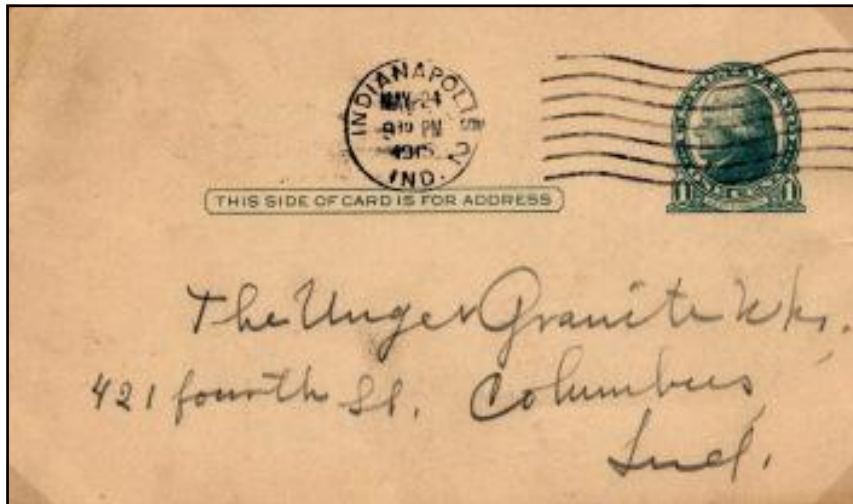 INDIANAPOLIS
MAY 24
9 30 PM
1915
IND. 2
1 1
THIS SIDE OF CARD IS FOR ADDRESS
The Unger Granite Wks.
421 fourth St. Columbus,
Ind.